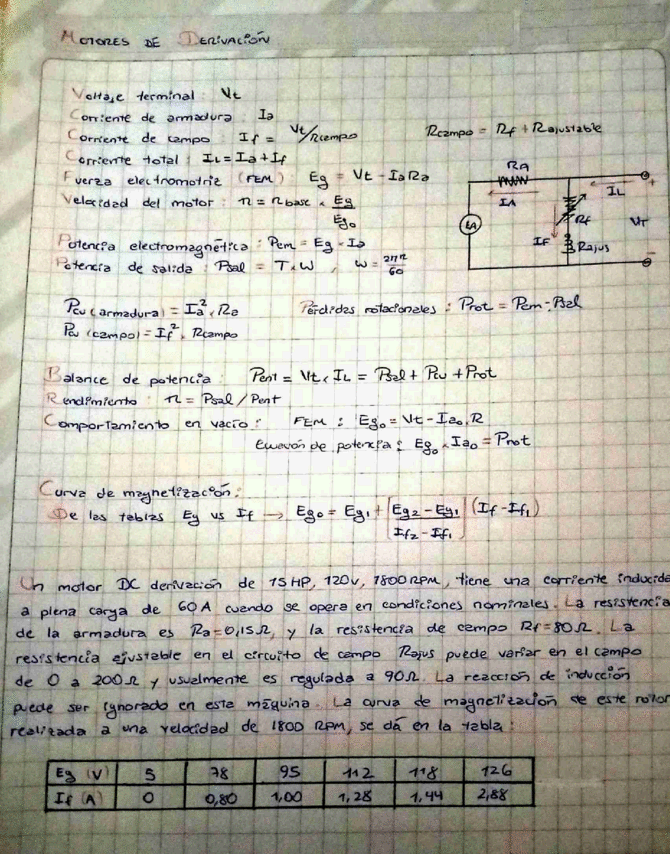 MOTORES DE DERIVACIÓN
Voltaje terminal : Vt
Corriente de armadura : Ia
Corriente de campo : If = Vt/Rcampo
Rcampo = Rf + Rajustable
Corriente total : IL = Ia + If
Fuerza electromotriz (FEM) Eg = Vt - IaRa
Velocidad del motor : n = nbase x Eg/Ego
RA
IA
IL
+
EA
Rf
VT
IF
Rajus
-
Potencia electromagnética : Pem = Eg · Ia
Potencia de salida : Psal = T x W , W = 2πn/60
Pcu (armadura) = Ia² x Ra
Pérdidas rotacionales : Prot = Pem - Psal
Pcu (campo) = If² x Rcampo
Balance de potencia : Pent = Vt x IL = Psal + Pcu + Prot
Rendimiento : n = Psal / Pent
Comportamiento en vacío : FEM : Ego = Vt - Iao.R
Ecuación de potencia : Ego x Iao = Prot
Curva de magnetización :
De las tablas Eg vs If → Ego = Eg1 + [Eg2 - Eg1 / If2 - If1] (If - If1)
Un motor DC derivación de 15 HP, 120v, 1800 RPM, tiene una corriente inducida
a plena carga de 60 A cuando se opera en condiciones nominales. La resistencia
de la armadura es Ra = 0,15 Ω, y la resistencia de campo Rf = 80 Ω. La
resistencia ajustable en el circuito de campo Rajus puede variar en el campo
de 0 a 200 Ω y usualmente es regulada a 90 Ω. La reacción de inducción
puede ser ignorado en esta máquina. La curva de magnetización de este rotor
realizada a una velocidad de 1800 RPM, se dá en la tabla :
Eg (V) 5 78 95 112 118 126
If (A) 0 0,80 1,00 1,28 1,44 2,88